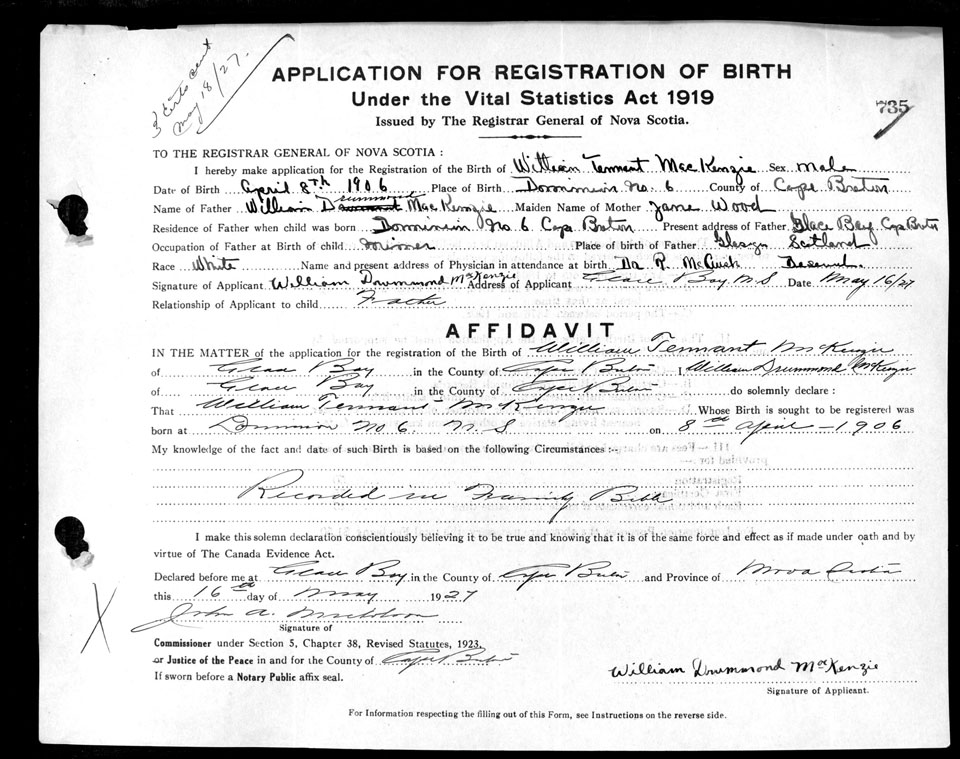 3 Certs sent
May 18/27.
APPLICATION FOR REGISTRATION OF BIRTH
Under the Vital Statistics Act 1919
735
Issued by The Registrar General of Nova Scotia.
TO THE REGISTRAR GENERAL OF NOVA SCOTIA :
I hereby make application for the Registration of the Birth of William Tennant MacKenzie Sex male
Date of Birth April 8th 1906 Place of Birth Dominion No. 6 County of Cape Breton
Name of Father William Drummond MacKenzie Maiden Name of Mother Jane Wood
Residence of Father when child was born Dominion No. 6 Cape Breton Present address of Father Glace Bay Cape Breton
Occupation of Father at Birth of child miner Place of birth of Father Glasgow Scotland
Race White Name and present address of Physician in attendance at birth Dr R. McCuish Deceased.
Signature of Applicant William Drummond MacKenzie Address of Applicant Glace Bay N.S Date May 16/27
Relationship of Applicant to child Father
AFFIDAVIT
IN THE MATTER of the application for the registration of the Birth of William Tennant McKenzie
of Glace Bay in the County of Cape Breton I, William Drummond McKenzie
of Glace Bay in the County of Cape Breton do solemnly declare :
That William Tennant McKenzie Whose Birth is sought to be registered was
born at Dominion No 6 N.S on 8th April - 1906
My knowledge of the fact and date of such Birth is based on the following Circumstances :-
Recorded in Family Bible
I make this solemn declaration conscientiously believing it to be true and knowing that it is of the same force and effect as if made under oath and by
virtue of The Canada Evidence Act.
Declared before me at Glace Bay in the County of Cape Breton and Province of Nova Scotia
this 16th day of May 1927
John A. Nicholson
Signature of
Commissioner under Section 5, Chapter 38, Revised Statutes, 1923,
or Justice of the Peace in and for the County of Cape Breton
If sworn before a Notary Public affix seal.
William Drummond MacKenzie
Signature of Applicant.
For Information respecting the filling out of this Form, see Instructions on the reverse side.